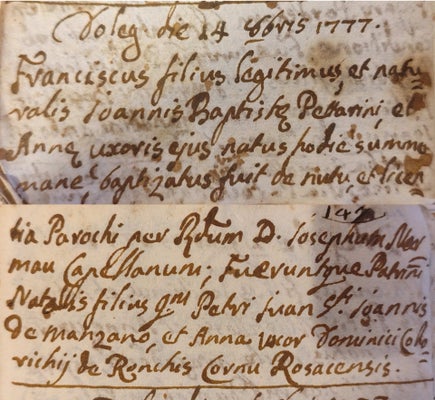 Doleg. die 14 8bris 1777.
Franciscus filius legitimus, et natu-
ralis Joannis Baptistę Pettarini, et
Annę uxoris ejus natus hodie summo
mane baptizatus fuit de nutu, et licen
142
tia Parochi per Rdum D. Josephum Ner
mau Capellanum; Fueruntque Patrini
Natalis filius qm Petri Juan Sti. Joannis
de Manzano, et Anna uxor Dominici Cabo
richij de Ronchis Cornu Rosacensis.